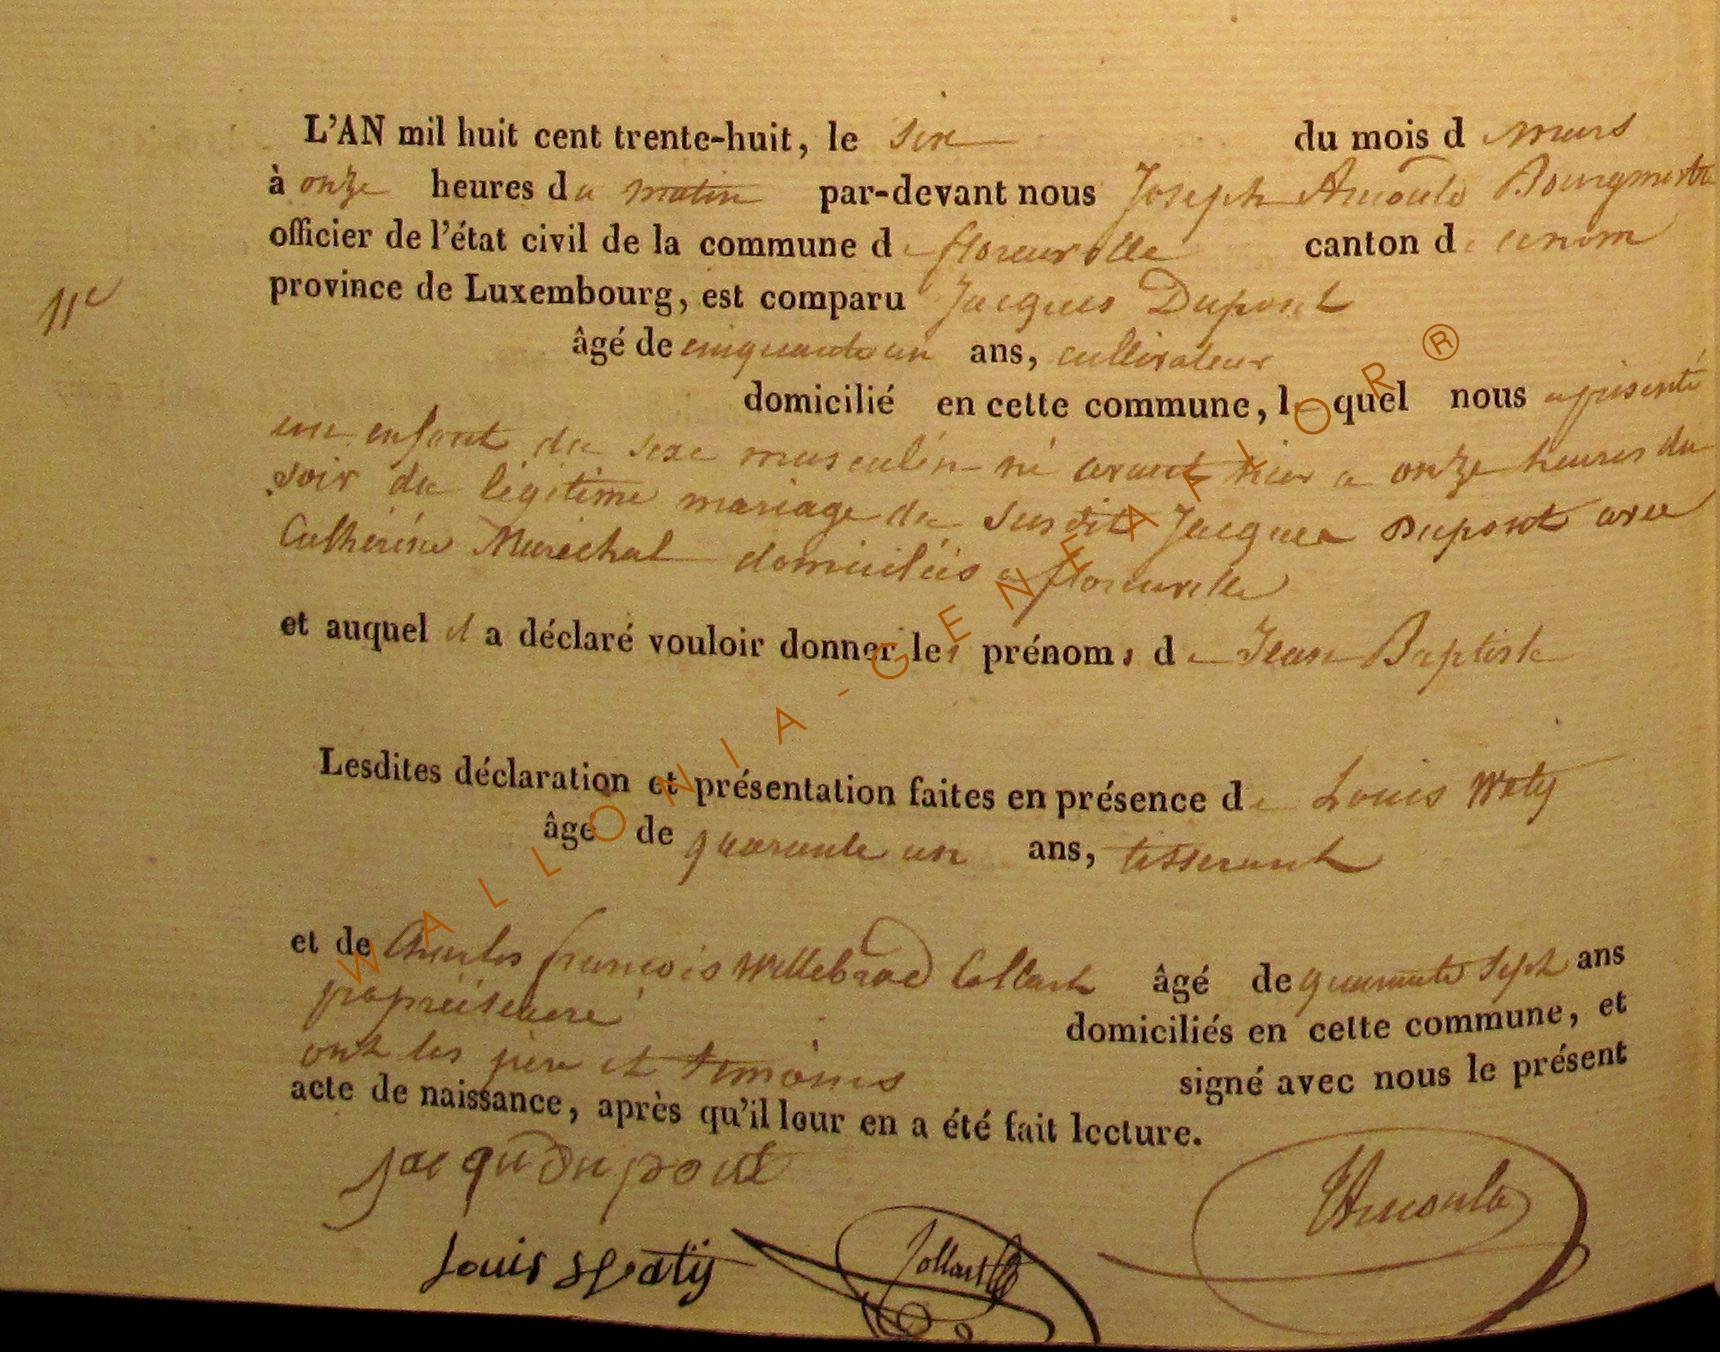 L'AN mil huit cent trente-huit, le six du mois de mars
à onze heures du matin par-devant nous Joseph Arnould Bourgmestre
officier de l'état civil de la commune de florenville canton de
province de Luxembourg, est comparu Jacques Dupont
11e
âgé de cinquante un ans, cultivateur
domicilié en cette commune, lequel nous a présenté
un enfant du sexe masculin né avant hier a onze heures du
soir du légitime mariage du susdit Jacques Dupont avec
Cathérine Maréchal domiciliés a florenville
et auquel il a déclaré vouloir donner les prénoms de Jean Baptiste
Lesdites déclaration et présentation faites en présence de Louis Watÿ
âgé de quarante un ans, tisserant
et de Charles françois Willebrod Collart âgé de quarante sept ans
propriétaire domiciliés en cette commune, et
ont les père et témoins signé avec nous le présent
acte de naissance, après qu'il leur en a été fait lecture.
Jacqu Dupont
Louis Watÿ Collart
WALLONIA-GENEAFLOR ®